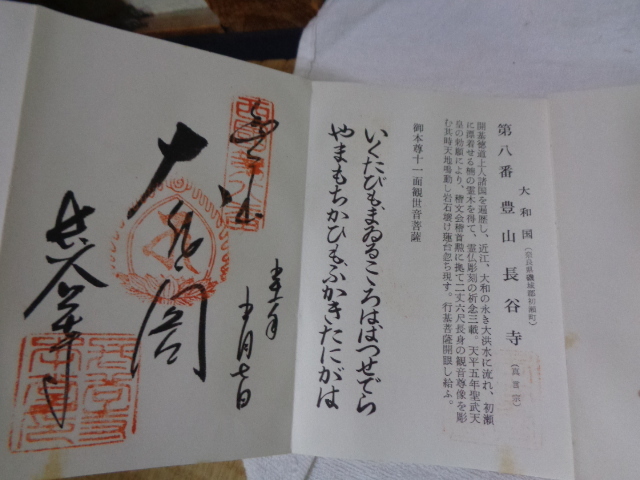 大和国（奈良県磯城郡初瀬町）
第八番 豊山長谷寺（真言宗）
開基徳道上人諸国を遍歴し、近江、大和の水き大洪水に流れ、初瀬
に漂着せる楠の霊木を得て、霊仏彫刻の祈念三載。天平五年聖武天
皇の勅願により、稽文会稽首勲に拠て二丈六尺長身の観音尊像を彫
む其時天地鳴動し岩石壊け蓮台忽ち現す。行基菩薩開眼し給ふ。
御本尊十一面観世音菩薩
いくたびもまゐるこころははつせでら
やまもちかひもふかきたにがは
奉拝
大悲閣
長谷寺
十月七日